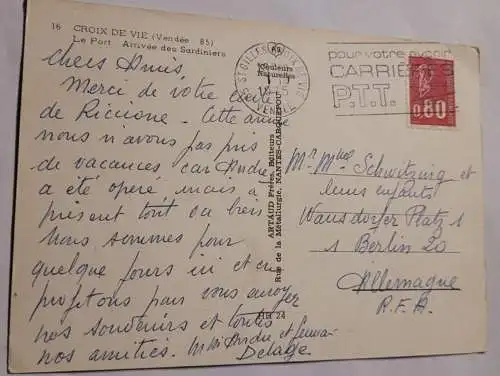 16 CROIX DE VIE (Vendée 85)
Le Port Arrivée des Sardiniers
Chers Amis,
Merci de votre carte
de Riccione. Cette année
nous n'avons pas pris
de vacances car André
a été opéré mais à
présent tout va bien
Nous sommes pour
quelque jours ici et en
profitons pour vous envoyer
nos souvenirs et toutes
nos amitiés. Mme André et
Delage
Couleurs
Naturelles
ARTAUD Frères, Editeurs
Rue de la Métallurgie, NANTES-CARQUEFOU
24
ST GILLES CROIX DE VIE
VENDEE
pour votre avenir
CARRIERES
P.T.T.
0,80
Mr Mme Schwitzurg et
leurs enfants
Wansdorfer Platz 1
1 Berlin 20
Allemagne
R.F.A.